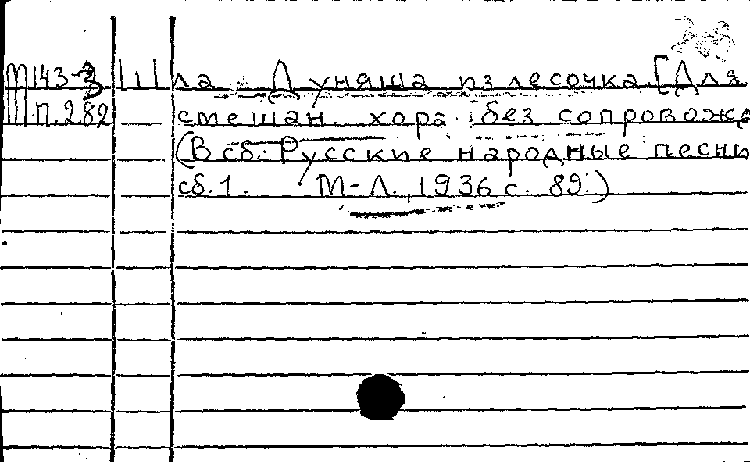 М143-3 Шла Дуняша из лесочка [Для
Ш п.282 смешан. хора без сопровожд
(В сб. Русские народные песни
сб.1. М-Л. 1936 с. 89.)